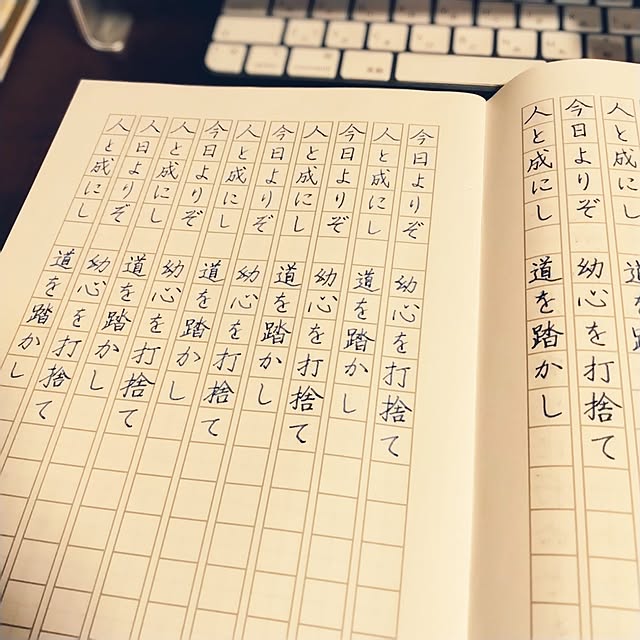 人と成にし 道を踏
今日よりぞ 幼心を打捨て
人と成にし 道を踏かし
今日よりぞ 幼心を打捨て
人と成にし 道を踏かし
今日よりぞ 幼心を打捨て
人と成にし 道を踏かし
今日よりぞ 幼心を打捨て
人と成にし 道を踏かし
今日よりぞ 幼心を打捨て
人と成にし 道を踏かし
今日よりぞ 幼心を打捨て
人と成にし 道を踏かし